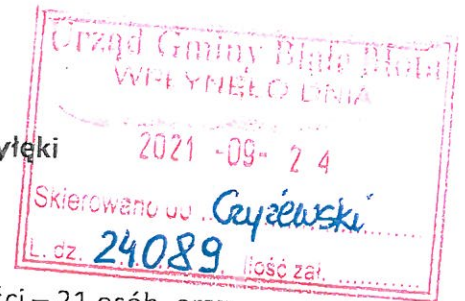 Urząd Gminy Białe Błota
WPŁYNĘŁO DNIA
yłęki
2021 -09- 2 4
Skierowano do .. Czyżewski
L. dz. 24089 Ilość zał. ............
ci – 21 osób